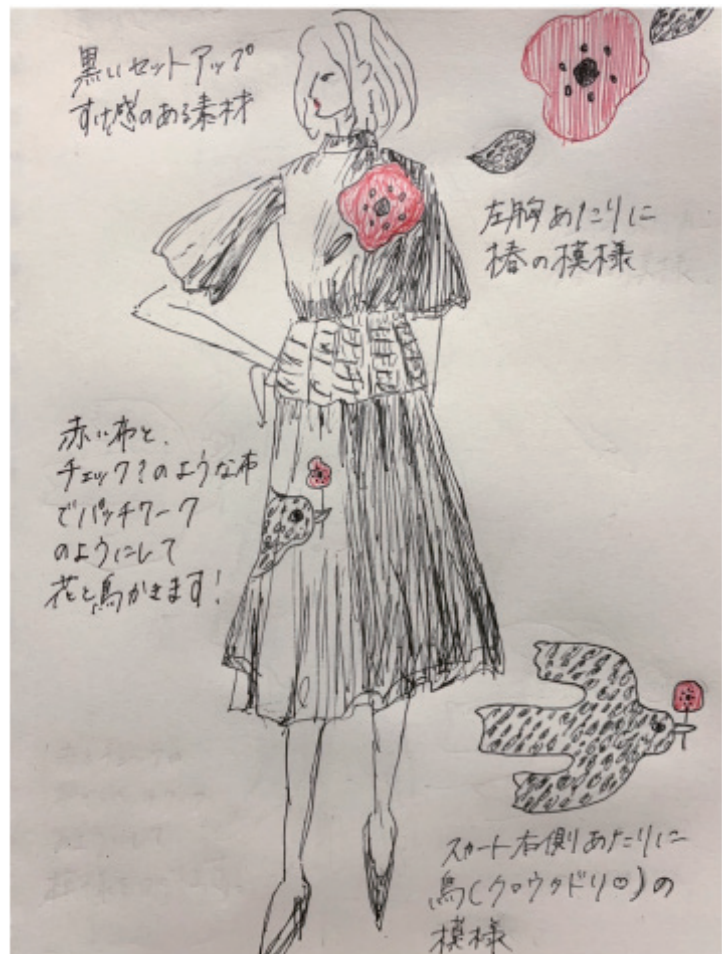 黒いセットアップ
すけ感のある素材
左胸あたりに
椿の模様
赤い布と、
チェック?のような布
でパッチワーク
のようにして
花と鳥かきます!
スカート右側あたりに
鳥(クロウタドリ♡)の
模様